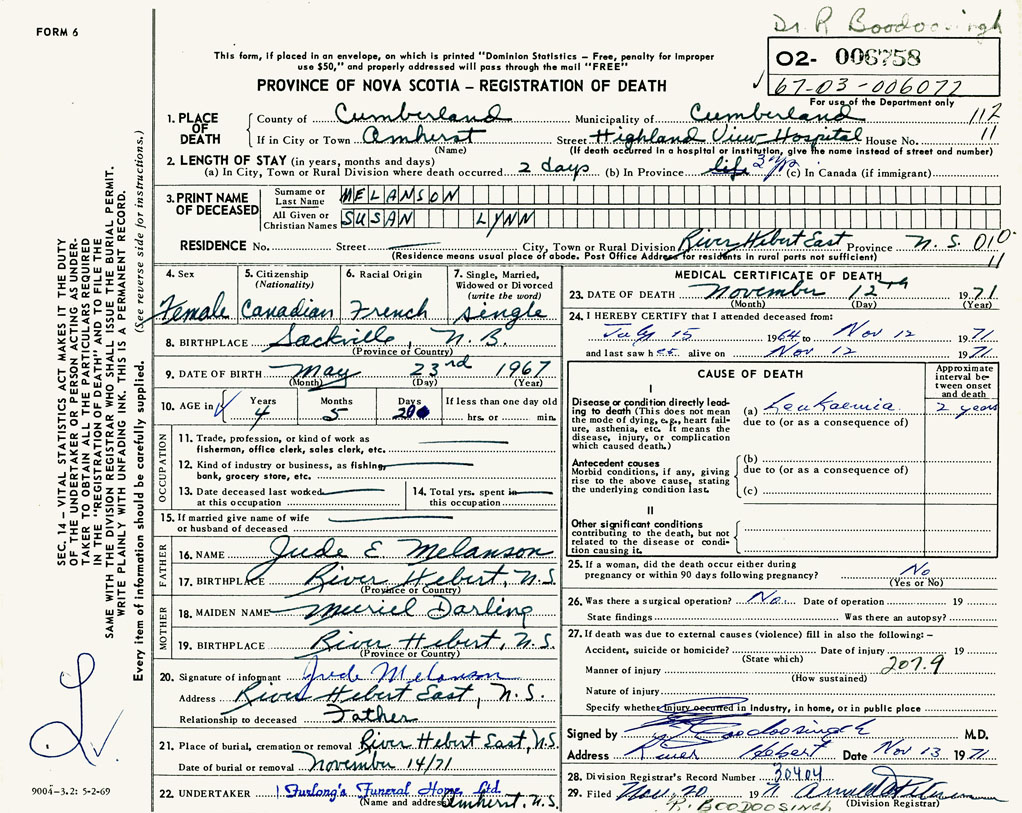 Dr. R Boodoosingh
FORM 6
This form, if placed in an envelope, on which is printed "Dominion Statistics – Free, penalty for improper
use $50," and properly addressed will pass through the mail "FREE"
O2- 006758
67-03-006072
For use of the Department only
PROVINCE OF NOVA SCOTIA – REGISTRATION OF DEATH
1. PLACE OF DEATH
County of Cumberland Municipality of Cumberland 112
If in City or Town Amherst Street Highland View Hospital House No. 11
(Name) (If death occurred in a hospital or institution, give the name instead of street and number)
2. LENGTH OF STAY (in years, months and days)
(a) In City, Town or Rural Division where death occurred 2 days (b) In Province life 3 yrs (c) In Canada (if immigrant)
3. PRINT NAME OF DECEASED
Surname or Last Name MELANSON
All Given or Christian Names SUSAN LYNN
RESIDENCE No. Street City, Town or Rural Division River Hebert East Province N.S. 010
(Residence means usual place of abode. Post Office Address for residents in rural parts not sufficient) 11
4. Sex Female
5. Citizenship (Nationality) Canadian
6. Racial Origin French
7. Single, Married, Widowed or Divorced (write the word) single
8. BIRTHPLACE Sackville, N.B.
(Province or Country)
9. DATE OF BIRTH May 23rd 1967
(Month) (Day) (Year)
10. AGE in Years 4 Months 5 Days 20 If less than one day old
hrs. or min.
OCCUPATION
11. Trade, profession, or kind of work as
fisherman, office clerk, sales clerk, etc.
12. Kind of industry or business, as fishing,
bank, grocery store, etc.
13. Date deceased last worked
at this occupation
14. Total yrs. spent in
this occupation
15. If married give name of wife
or husband of deceased
FATHER
16. NAME Jude E Melanson
17. BIRTHPLACE River Hebert, N.S.
(Province or Country)
MOTHER
18. MAIDEN NAME Muriel Darling
19. BIRTHPLACE River Hebert, N.S.
(Province or Country)
20. Signature of informant Jude Melanson
Address River Hebert East, N.S.
Relationship to deceased Father
21. Place of burial, cremation or removal River Hebert East, N.S.
Date of burial or removal November 14/71
22. UNDERTAKER Furlong's Funeral Home Ltd.
(Name and address) Amherst, N.S.
MEDICAL CERTIFICATE OF DEATH
23. DATE OF DEATH November 12th 1971
(Month) (Day) (Year)
24. I HEREBY CERTIFY that I attended deceased from:
July 15 1964 to Nov 12 1971
and last saw her alive on Nov 12 1971
CAUSE OF DEATH
Approximate interval between onset and death
I
Disease or condition directly leading
to death (This does not mean
the mode of dying, e.g., heart failure,
asthenia, etc. It means the
disease, injury, or complication
which caused death.)
(a) Leukaemia 2 years
due to (or as a consequence of)
Antecedent causes
Morbid conditions, if any, giving
rise to the above cause, stating
the underlying condition last.
(b)
due to (or as a consequence of)
(c)
II
Other significant conditions
contributing to the death, but not
related to the disease or condition
causing it.
25. If a woman, did the death occur either during
pregnancy or within 90 days following pregnancy? No
(Yes or No)
26. Was there a surgical operation? No. Date of operation 19
State findings Was there an autopsy?
27. If death was due to external causes (violence) fill in also the following: –
Accident, suicide or homicide? Date of injury 19
(State which)
Manner of injury 207.9
(How sustained)
Nature of injury
Specify whether injury occurred in industry, in home, or in public place
Signed by Boodoosingh M.D.
Address River Hebert Date Nov 13 1971
28. Division Registrar's Record Number 30404
29. Filed Nov. 20 1971
(Division Registrar)
R. BOODOOSINGH
SEC. 14 – VITAL STATISTICS ACT MAKES IT THE DUTY
OF THE UNDERTAKER OR PERSON ACTING AS UNDERTAKER
TO OBTAIN ALL THE PARTICULARS REQUIRED
IN THE "REGISTRATION OF DEATH" AND TO FILE THE
SAME WITH THE DIVISION REGISTRAR WHO SHALL ISSUE THE BURIAL PERMIT.
WRITE PLAINLY WITH UNFADING INK. THIS IS A PERMANENT RECORD.
Every item of information should be carefully supplied. (See reverse side for instructions.)
9004-3.2: 5-2-69